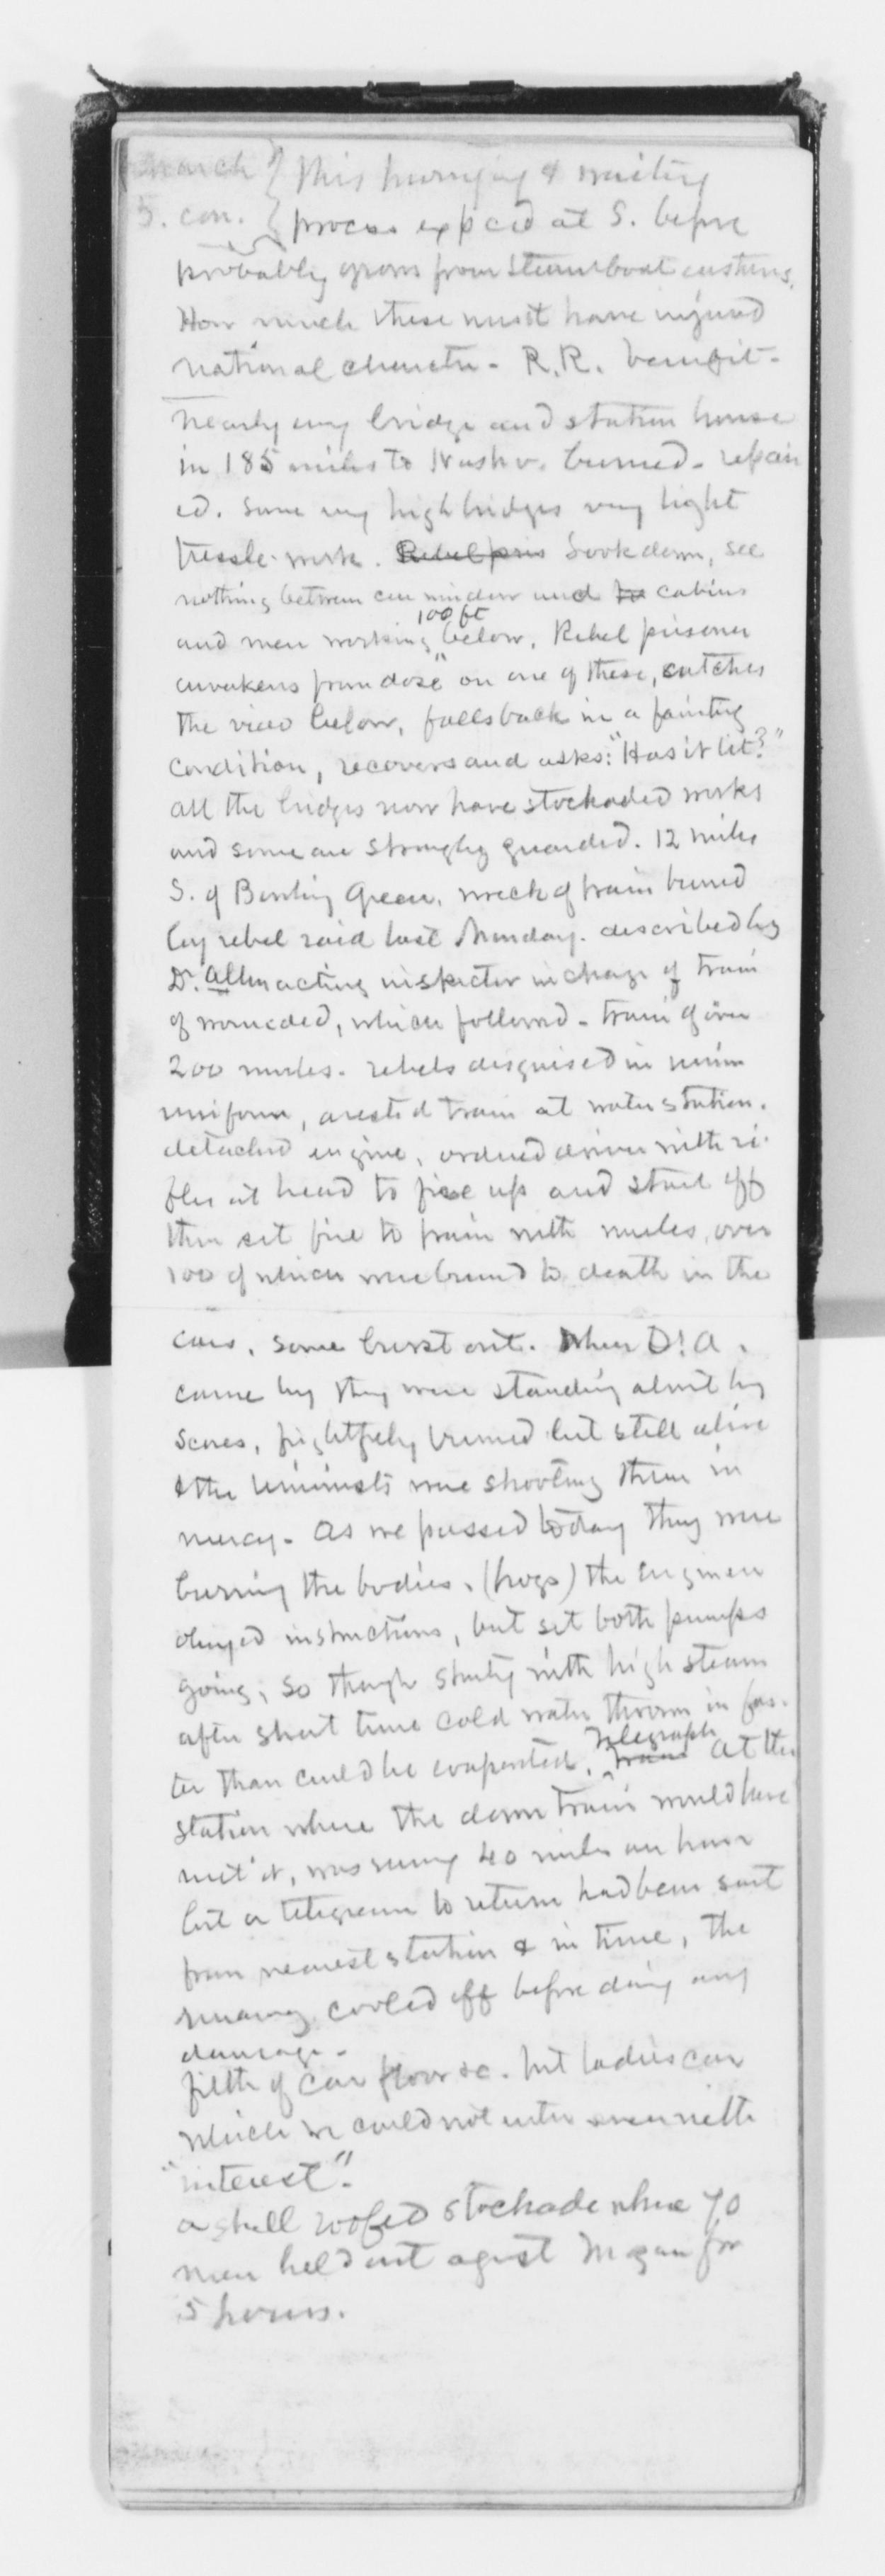 March } this hurrying & waiting
5. con. } process exp'ced at S. before
probably grows from steamboat customs.
How much these must have injured
national character - R.R. benefit -
Nearly every bridge and station house
in 185 miles to Nashv. burned - repair
ed. Some very high bridges very light
tressle-work. Rebel pris Look down, see
nothing between car window and to cabins
and men working 100 ft below. Rebel prisoner
awakens from dose on one of these, catches
the view below, falls back in a fainting
condition, recovers and asks: "Has it lit?"
All the bridges now have stockaded works
and some are strongly guarded. 12 miles
S. of Bowling Green, wreck of train burned
by rebel raid last Monday. described by
Dr. Allen acting inspector in charge of train
of wounded, which followed - train of over
200 mules - rebels disguised in union
uniform, arested train at water station.
detached engine, ordered driver with ri-
fles at head to fire up and start off
then set fire to train with mules, over
100 of which were burned to death in the
cars, some burst out. When Dr. A.
came by they were standing about by
scores, frightfully burned but still alive
& the unionists were shooting them in
mercy - As we passed today they were
burning the bodies. (hogs) the engineer
obeyed instructions, but set both pumps
going, so though starting with high steam
after short time cold water thrown in fas-
ter than could be evaporated. Telegraph Train at the
station where the down train would have
met it, was runng 40 miles an hour
but a telegram to return had been sent
from nearest station & in time, the
runaway cooled off before doing any
damage -
filth of car floor &c. but ladies car
which we could not enter even with
"interest".
a shell roofed stockade where 70
men held out agest Morgan for
5 hours.